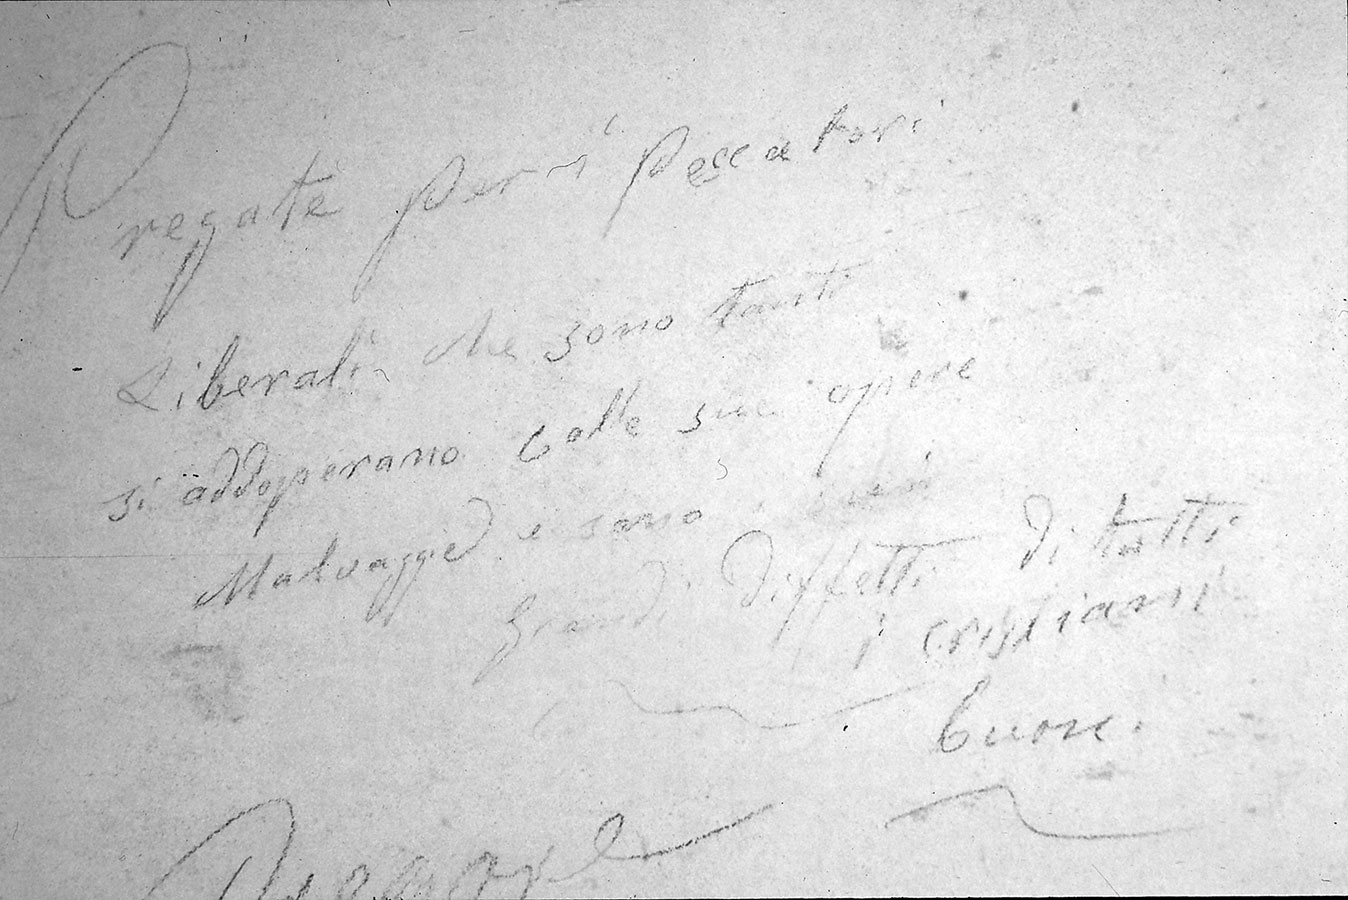 Pregate per i Peccatori
Liberali che sono tanti
si addoperano Colle sue opere
Malvaggie e sono i
Grandi diffetti di tutti
i cristiani
Cuore.